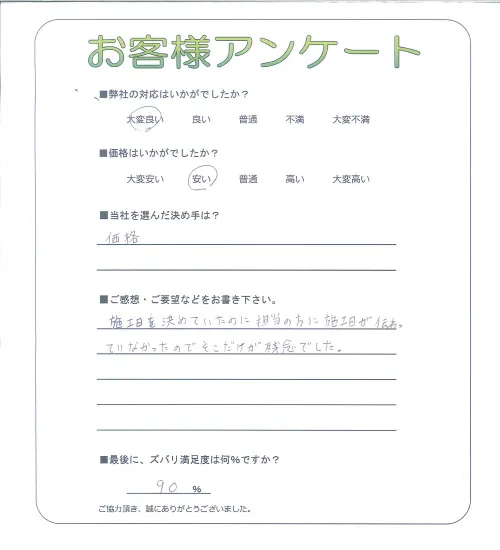 お客様アンケート
■弊社の対応はいかがでしたか？
大変良い 良い 普通 不満 大変不満
■価格はいかがでしたか？
大変安い 安い 普通 高い 大変高い
■当社を選んだ決め手は？
価格
■ご感想・ご要望などをお書き下さい。
施工日を決めていたのに担当の方に施工日が伝わっ
ていなかったのでそこだけが残念でした。
■最後に、ズバリ満足度は何%ですか？
90 %
ご協力頂き、誠にありがとうございました。